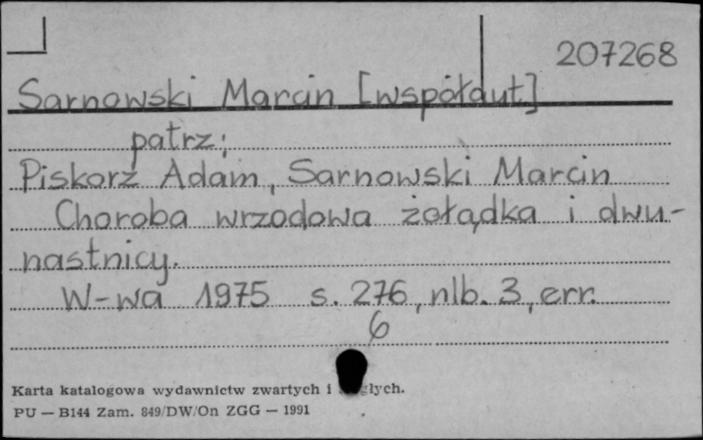 207268
Sarnowski Marcin [współaut.]
patrz:
Piskorz Adam, Sarnowski Marcin
Choroba wrzodowa żołądka i dwu-
nastnicy.
W-wa 1975 s. 276, nlb. 3, err.
6
Karta katalogowa wydawnictw zwartych i
PU — B144 Zam. 849/DW/On ZGG — 1991